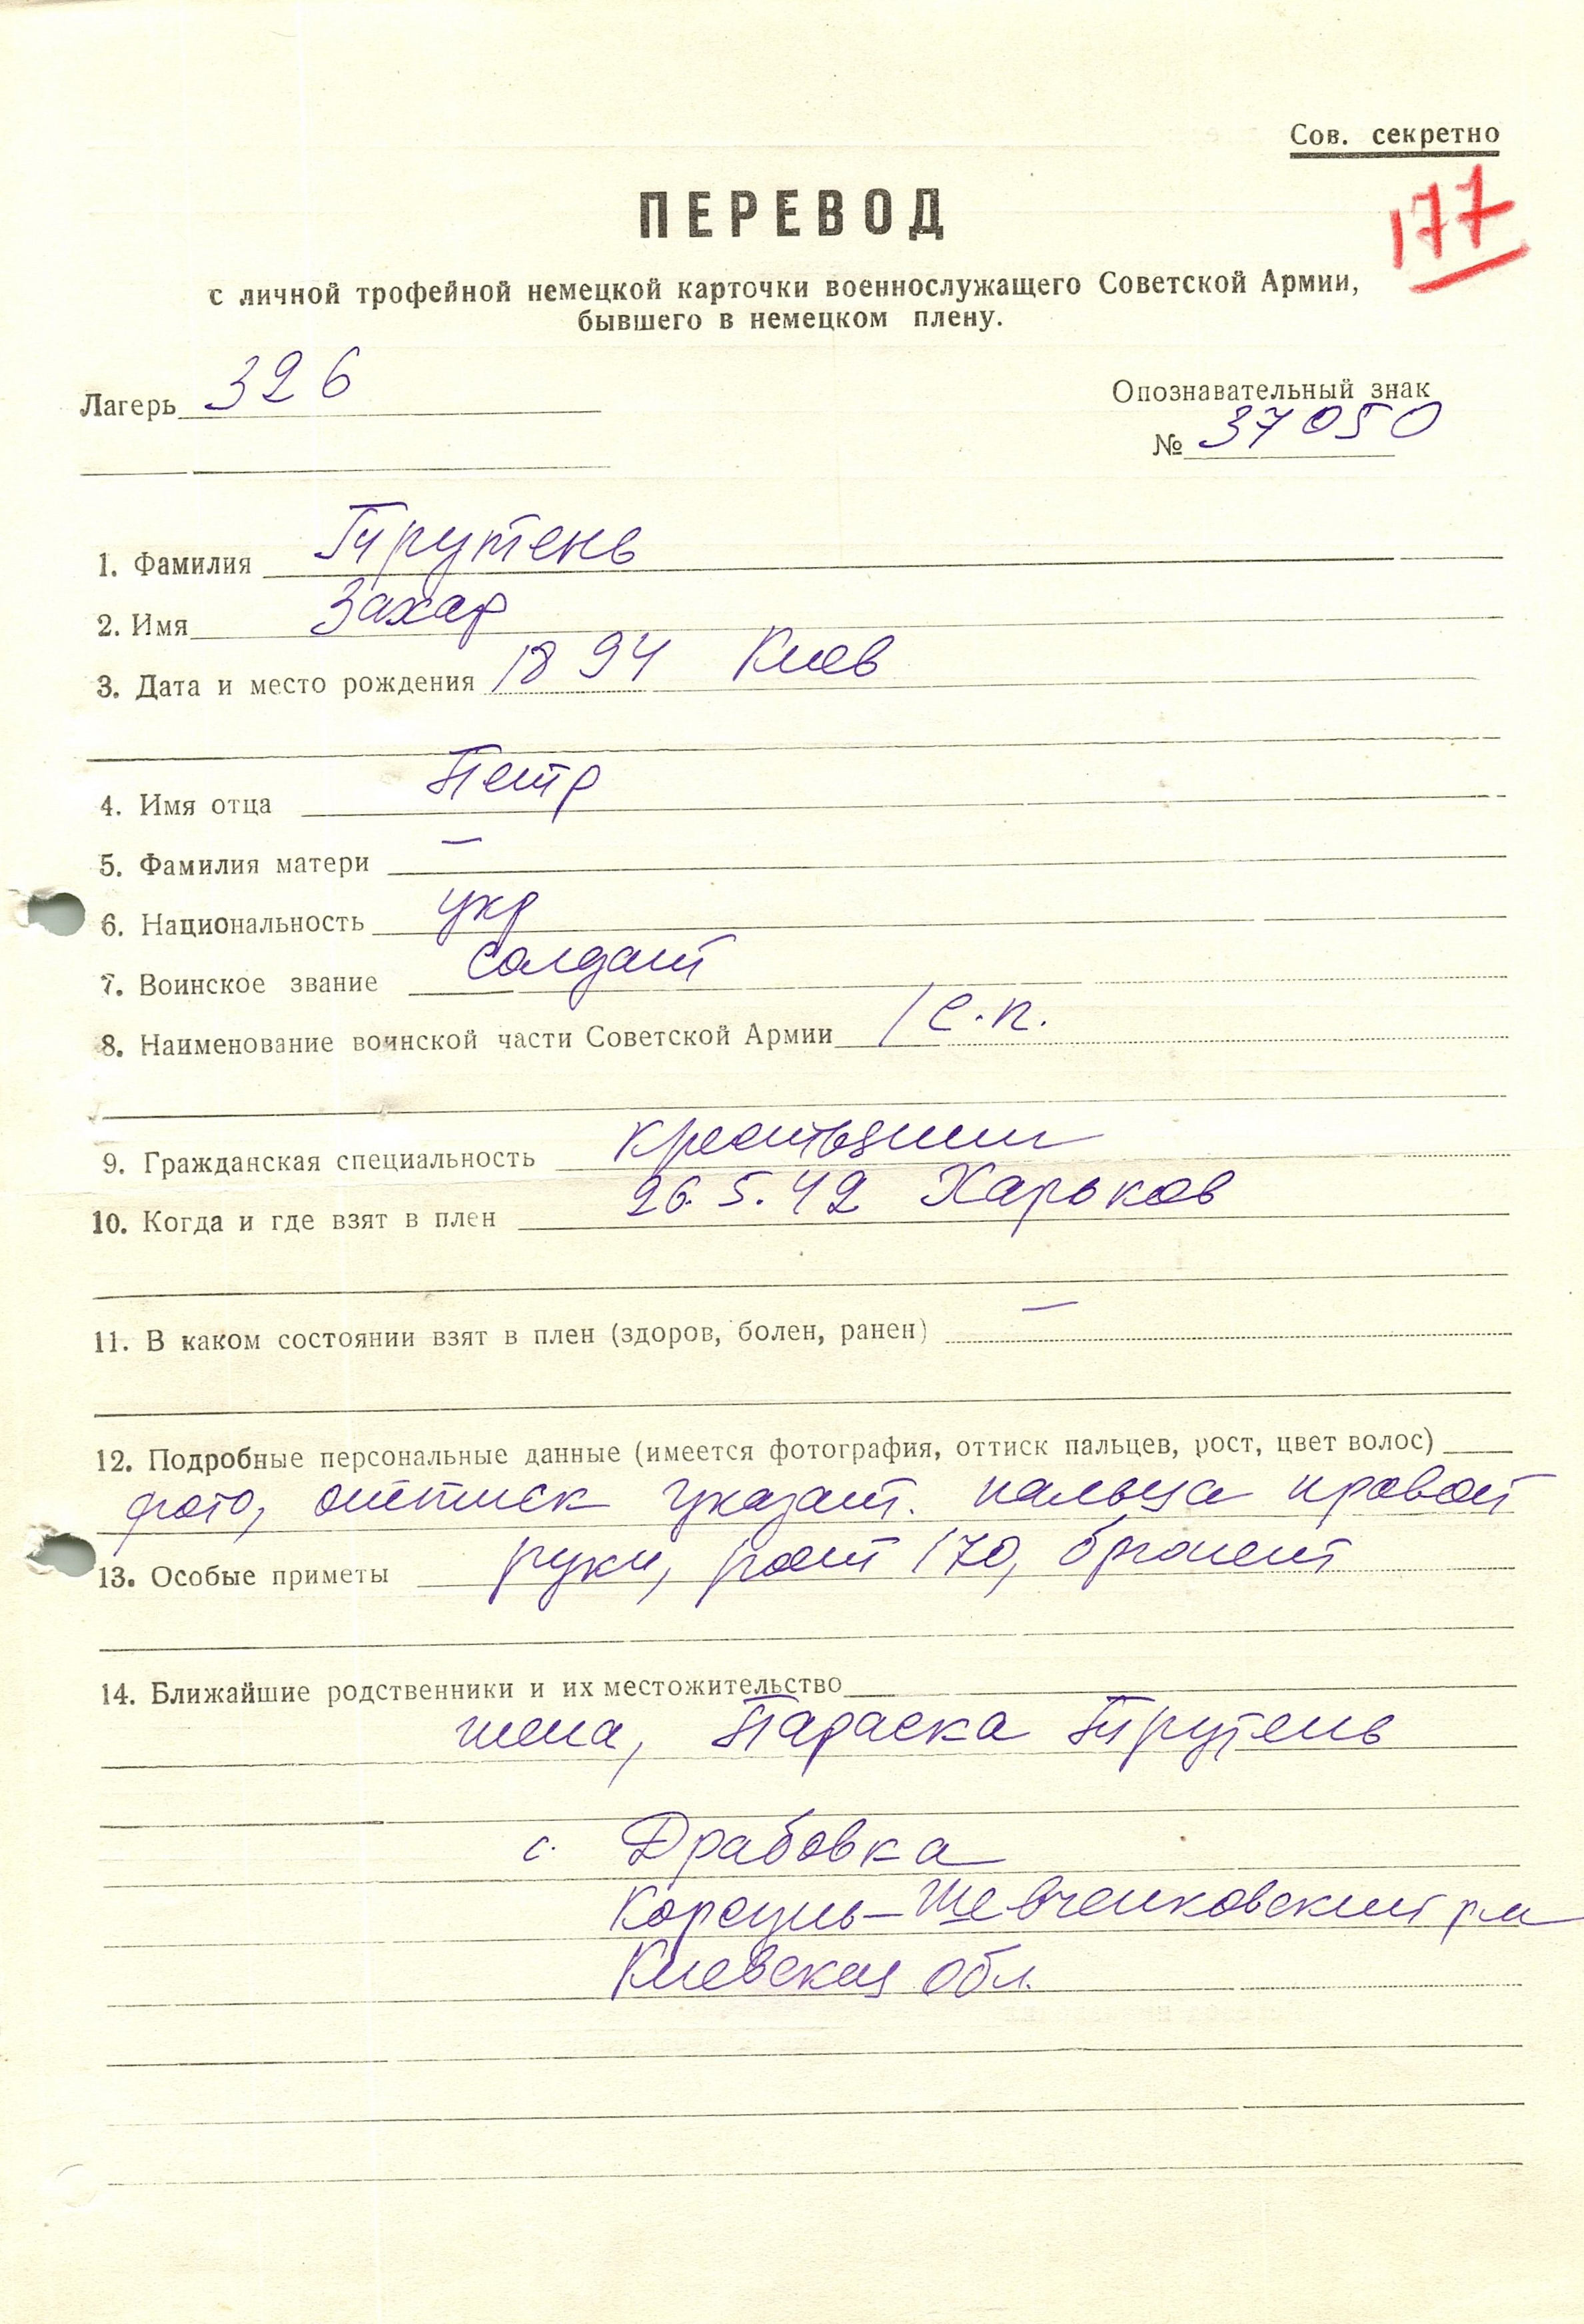 Сов. секретно
177
ПЕРЕВОД
с личной трофейной немецкой карточки военнослужащего Советской Армии,
бывшего в немецком плену.
Лагерь 326
Опознавательный знак
№ 37050
1. Фамилия Трутень
2. Имя Захар
3. Дата и место рождения 1894 Киев
4. Имя отца Петр
5. Фамилия матери —
6. Национальность укр
7. Воинское звание солдат
8. Наименование воинской части Советской Армии 1 с.п.
9. Гражданская специальность крестьянин
10. Когда и где взят в плен 26.5.42 Харьков
11. В каком состоянии взят в плен (здоров, болен, ранен) —
12. Подробные персональные данные (имеется фотография, оттиск пальцев, рост, цвет волос)
фото, оттиск указат. пальца правой
13. Особые приметы руки, рост 170, брюнет
14. Ближайшие родственники и их местожительство
жена, Параска Трутень
с. Драбовка
Корсунь-Шевченковский рн
Киевская обл.